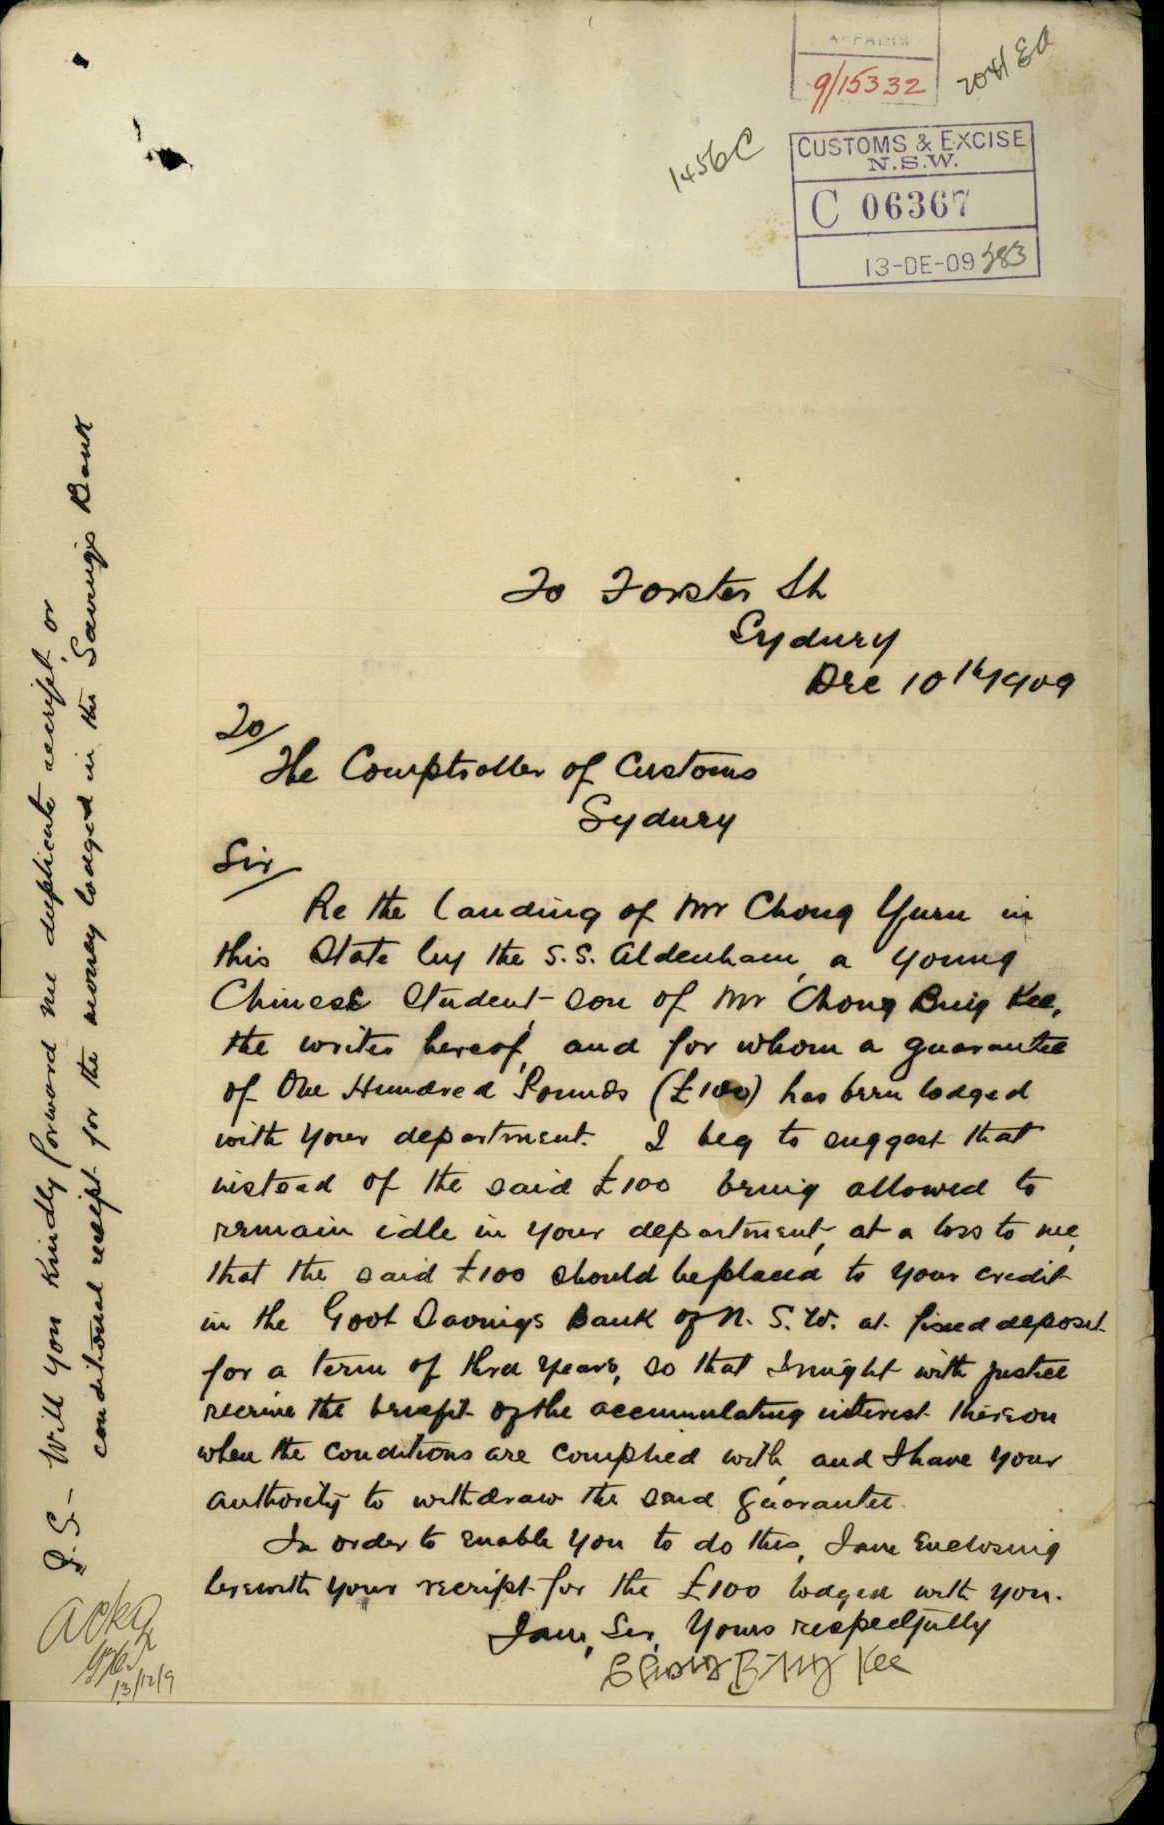 AFFAIRS
9/15332
2081 EA
1456C
CUSTOMS & EXCISE
N.S.W.
C 06367
13-DE-09 383
To Forster St
Sydney
Dec 10th 1909
To/
The Comptroller of Customs
Sydney
Sir
Re the landing of Mr Chong Yuen in
this State by the S.S. Aldenham, a young
Chinese Student son of Mr Chong Buig Kee,
the writer hereof, and for whom a guarantee
of One Hundred Pounds (£100) has been lodged
with your department. I beg to suggest that
instead of the said £100 being allowed to
remain idle in your department, at a loss to me,
that the said £100 should be placed to your credit
in the Govt Savings Bank of N. S. W. at fixed deposit
for a term of three years, so that I might with justice
receive the benefit of the accumulating interest thereon
when the conditions are complied with, and I have your
authority to withdraw the said guarantee.
In order to enable you to do this, I am enclosing
herewith your receipt for the £100 lodged with you.
I am, Sir, Yours respectfully
Kee
P.S- Will you kindly forward me duplicate receipt or
conditional receipt for the money lodged in the Savings Bank
13/12/9